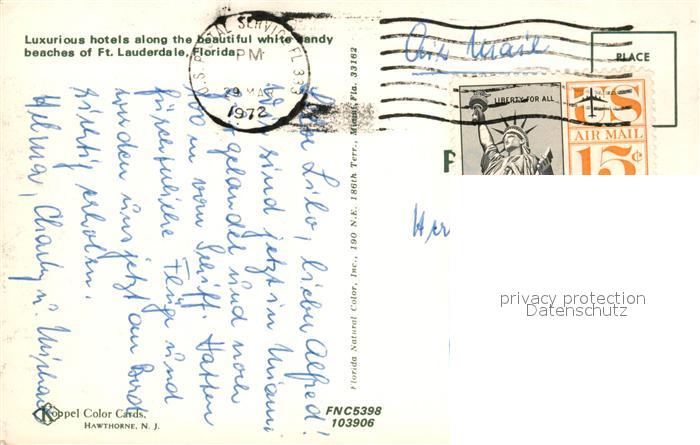 Luxurious hotels along the beautiful white sandy
beaches of Ft. Lauderdale, Florida.
U.S. POSTAL SERVICE, FL 333
PM
29 MAR
1972
Air Mail
PLACE
LIBERTY FOR ALL
US
AIR MAIL
15¢
P
Liebe Lilo, lieber Alfred!
Wir sind jetzt in Miami
gelandet und noch
vom Schiff. Hatten
Flüge und
werden uns jetzt an Bord
richtig erholen.
Helma, Charly u.
Her
Florida Natural Color, Inc., 190 N.E. 186th Terr., Miami, Fla. 33162
privacy protection
Datenschutz
Koppel Color Cards,
HAWTHORNE, N. J.
FNC5398
103906